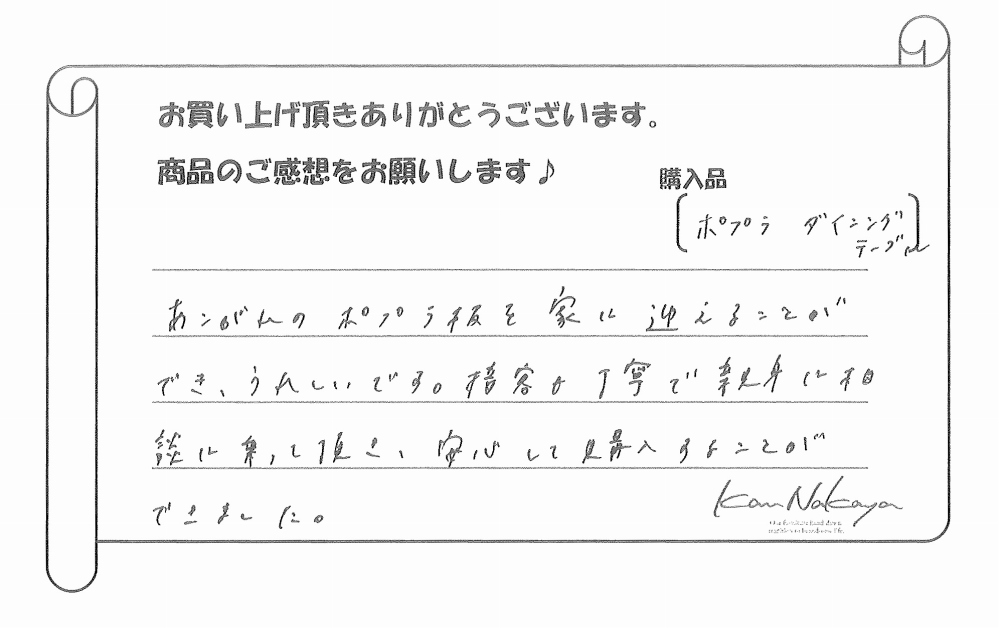 お買い上げ頂きありがとうございます。
商品のご感想をお願いします♪
購入品
ポプラ ダイニング
テーブル
あこがれの ポプラ板を 家に 迎えることが
でき、うれしいです。接客も丁寧で親身に相
談に乗って頂き、安心して購入することが
できました。
Kan Nakaya